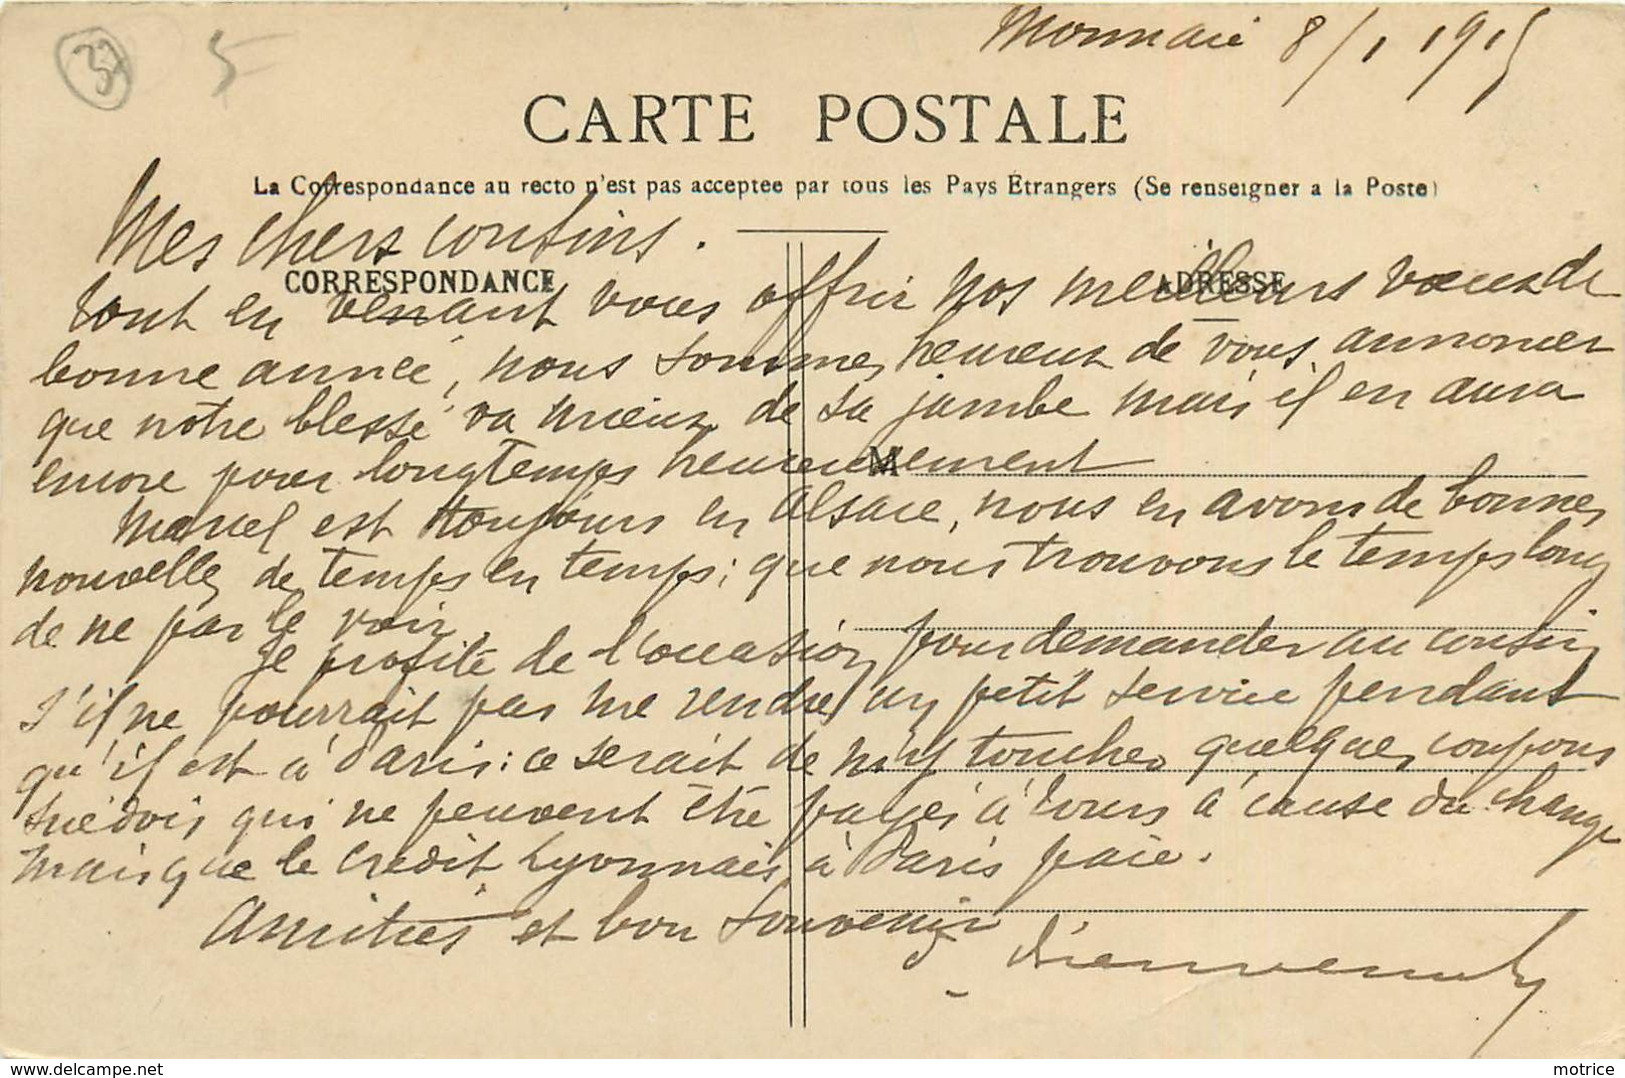 37 5
Monnaie 8/1 1915
CARTE POSTALE
La Correspondance au recto n'est pas acceptee par tous les Pays Étrangers (Se renseigner a la Poste)
Mes chers cousins.
CORRESPONDANCE
ADRESSE
tout en venant vous offrir nos meilleurs vœux de
bonne année, nous sommes heureux de vous annoncer
que notre blessé va mieux de sa jambe mais il en aura
encore pour longtemps heureusement
M
Marcel est toujours en Alsace, nous en avons de bonnes
nouvelles de temps en temps; que nous trouvons le temps long
de ne pas le voir
Je profite de l'occasion pour demander au cousin
s'il ne pourrait pas me rendre un petit service pendant
qu'il est à Paris: ce serait de m'y toucher quelques coupons
suédois qui ne peuvent être payés à Tours à cause du change
mais que le Credit Lyonnais à Paris paie.
Amitiés et bon souvenir
Bienvenu
delcampe.net
motrice